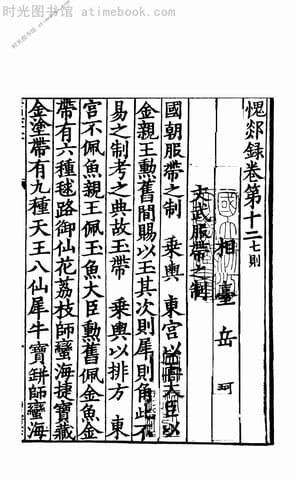 时光图书馆 - www.atimebook.com
愧郯錄卷第十二七則
相臺岳珂
文武服帶之制
國朝服帶之制 乘輿 東宮以玉大臣以
金親王勳舊間賜以玉其次則犀則角此不
易之制考之典故玉帶 乘輿以排方 東
宮不佩魚親王佩玉魚大臣勳舊佩金魚金
帶有六種毬路御仙花荔枝師蠻海捷寶藏
金塗帶有九種天王八仙犀牛寶缾師蠻海